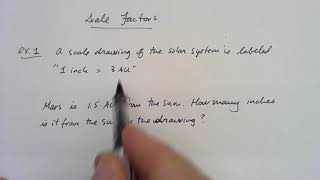 Scale Factors
ex. 1 A scale drawing of the solar system is labeled
"1 inch = 3 AU"
Mars is 1.5 AU from the sun. How many inches
is it from the sun in the drawing?